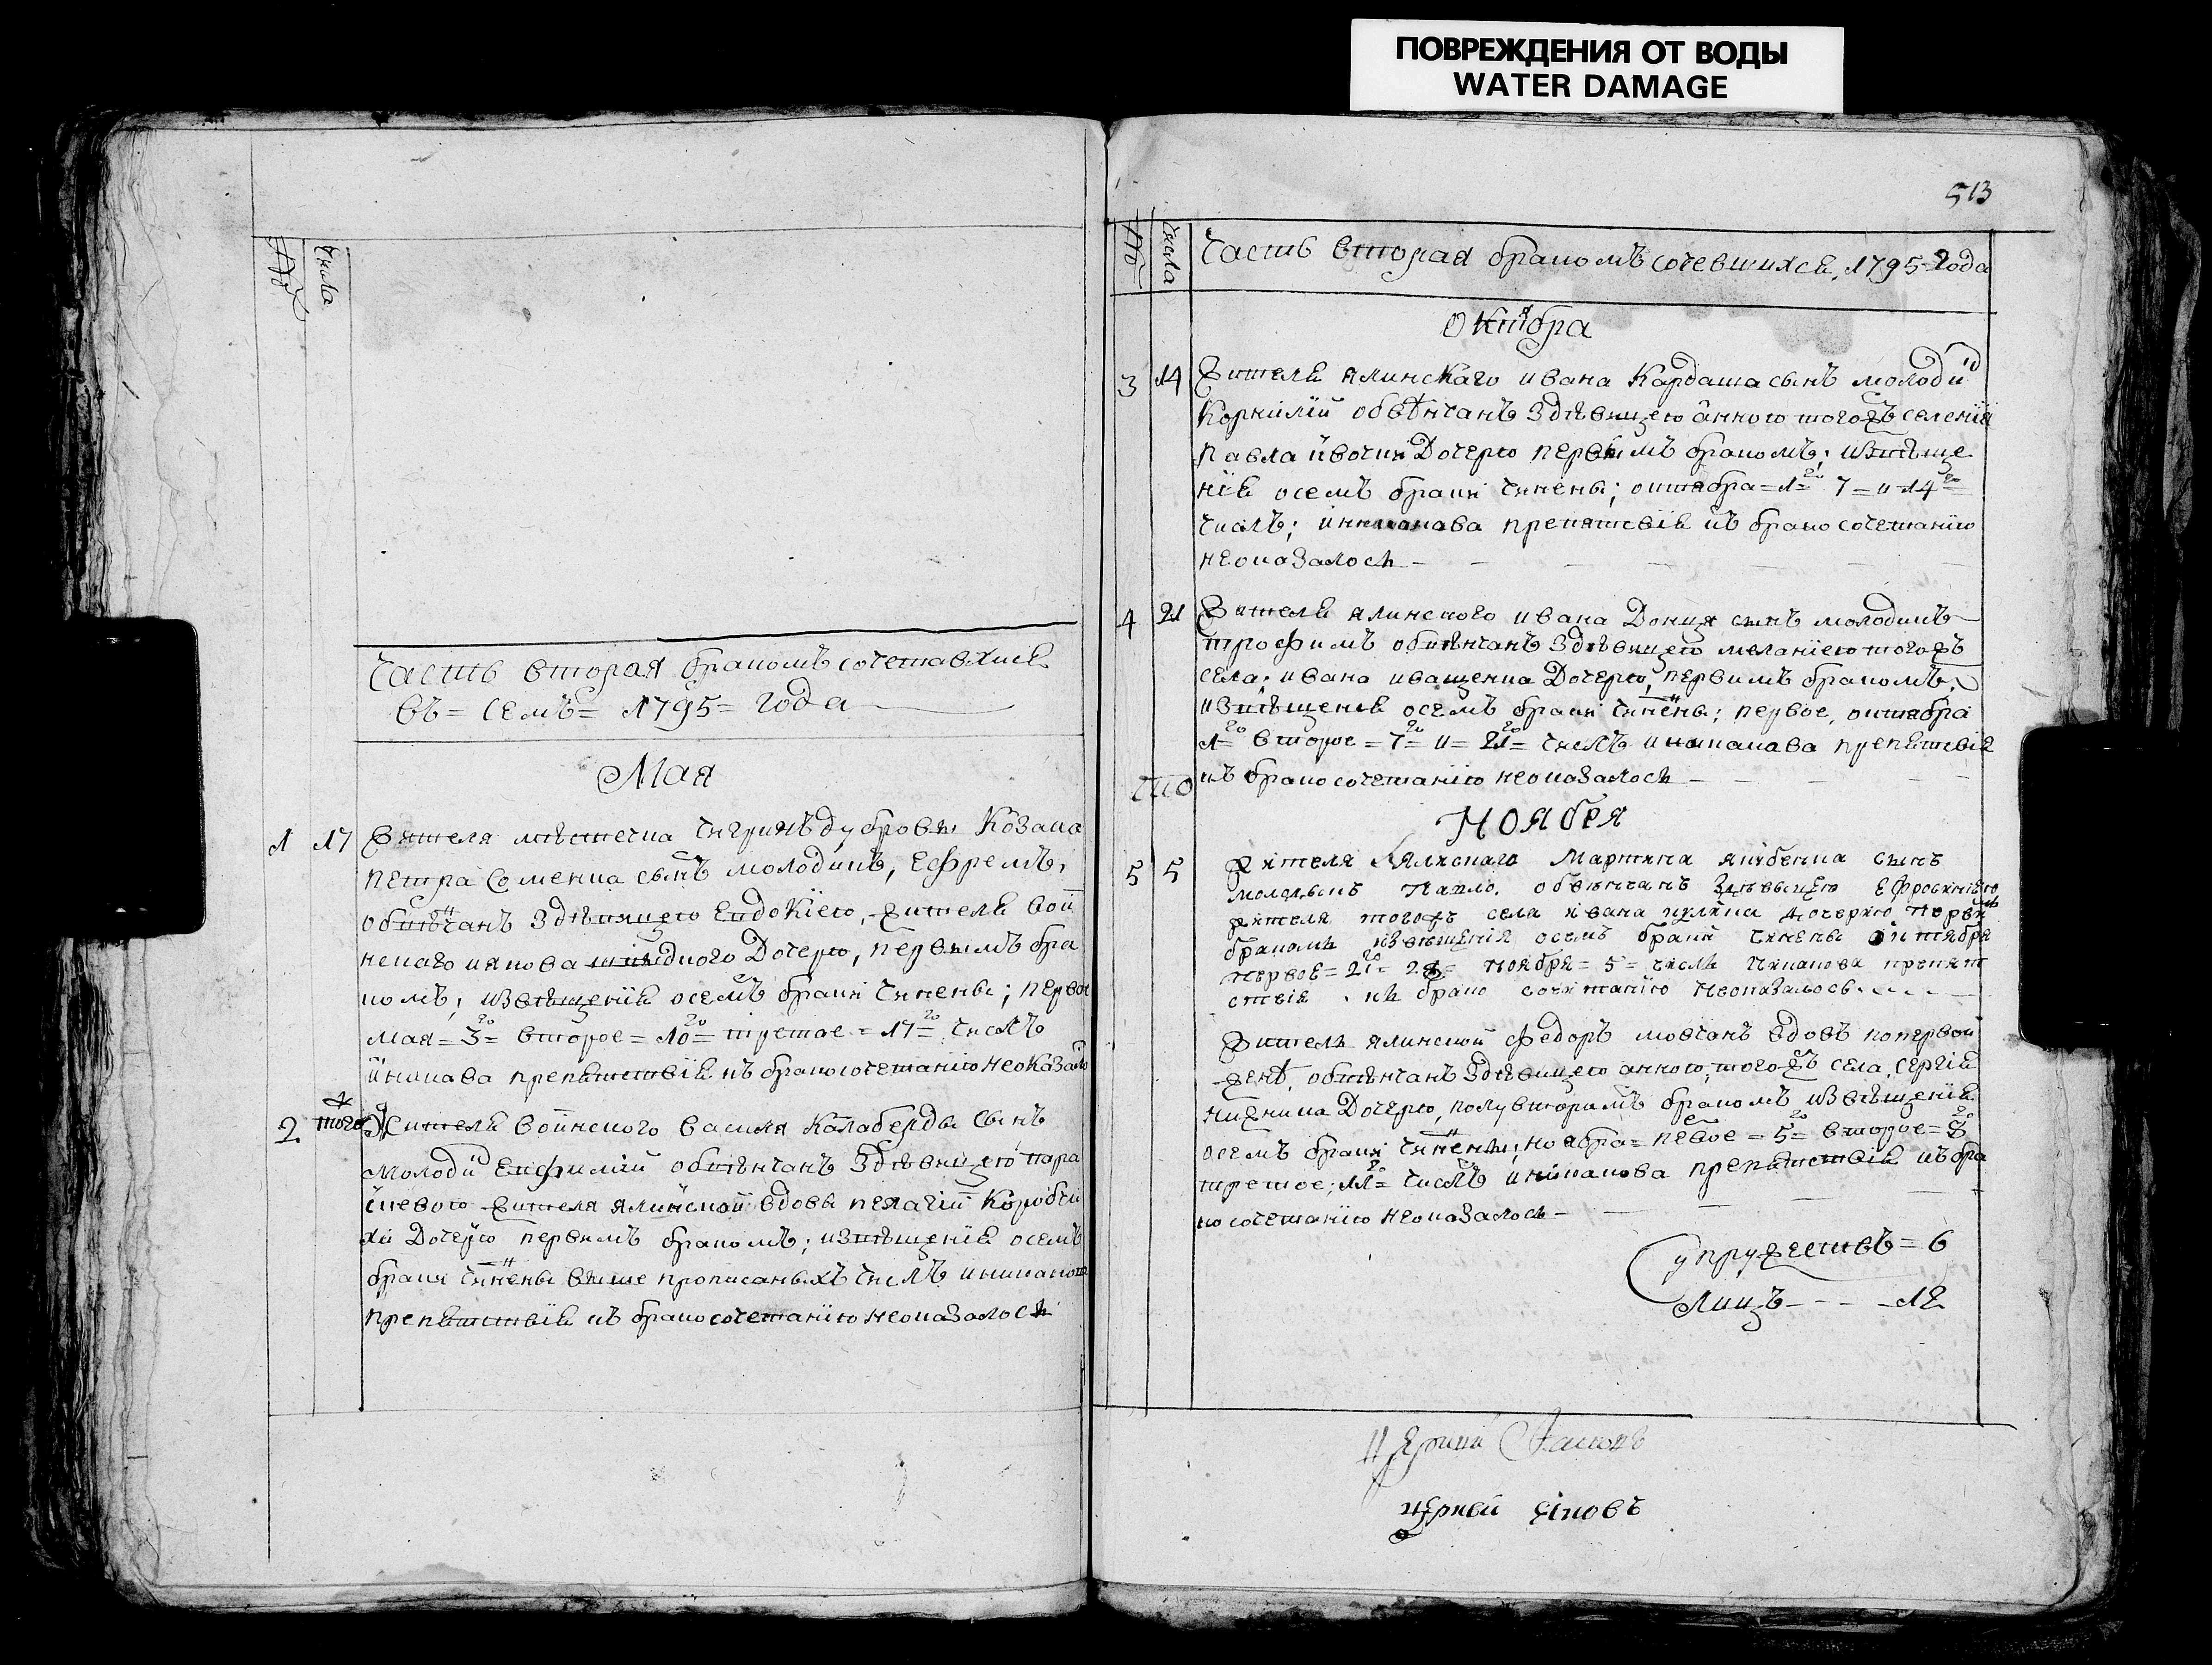 ПОВРЕЖДЕНИЯ ОТ ВОДЫ
WATER DAMAGE
числа
Часть вторая бракомъ сочетавхисе
въ = Семъ = 1795 = года
Мая
1 17 Жителя мѣстечка Чигринъ дубровы Козака
петра Соменка сынъ молодикъ, Ефремъ,
обвѣнчанъ здѣвицею Евдокїею, жителя вои
нскаго якова дного Дочерю, первымъ бра
комъ; извѣщенїя осемъ браки чинены; первое
мая = 3го = второе = 10го = третое = 17го = числъ
и никакова препятствїя къ бракосочетанїю неоказало
2 того ж Жителя воинского василя Калаберды Сынъ
молодй Евфимїй обвѣнчанъ здѣвицею пара
скевою жителя ялинской вдовы пелагїи Коробки
хи Дочерю первимъ бракомъ; извѣщенїя осемъ
браки чинены више прописаныхъ числъ и никакова
препятствїя къ бракосочетанїю неоказалось
513
числа Часть вторая бракомъ сочевшихся, 1795 = года
октября
3 14 Жителя ялинскаго ивана Кардаша сынъ молодй
Корнилїй обвѣнчанъ здѣвицею анною тогожъ селенїя
Павла Дочерю первимъ бракомъ; извѣще
нїя осемъ браки чинены; октября = 1го = 7 = и 14го =
числъ; и никакова препятсвїя къ бракосочетанїю
неоказалось
4 21 Жителя ялинского ивана Донця сынъ молодикъ
трофимъ обвѣнчанъ здѣвицею меланїею тогожъ
села; ивана иващенка Дочерю, первимъ бракомъ,
извѣщенїя осемъ браки чинены; первое, октября
1го = второе = 7го = и = 21го = числъ и никакава препятсвїя
къ бракосочетанїю неоказалось
Ноября
5 5 жителя Ялинскаго Мартина якубенка сынъ
молодыкъ Павло. обвѣнчанъ здѣвицею Ефросинїею
жителя тогожъ села ивана кулика дочерию первимъ
бракомъ извѣщенїя осемъ браки чинены октября
первое = 21го = 28 = ноября = 5 = числъ никакова препят
ствїя къ брако сочитанїю неоказалось.
Житель ялинской федоръ мовчанъ вдовъ попервой
женѣ, обвѣнчанъ здѣвицею анною, тогожъ села, Сергїя
Дочерю, полувторимъ бракомъ извѣщенїя
осемъ браки чинены; ноября = первое = 5го = второе = 8го
третое; 11го = числъ и никакова препятствїя къ бра
ко сочетанїю неоказалось
Супружествъ = 6
Лицъ - - - 12